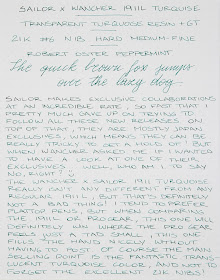 SAILOR X WANCHER 1911L TURQUOISE
TRANSPARENT TURQUOISE RESIN + GT
21K #6 NIB, HARD MEDIUM-FINE
ROBERT OSTER PEPPERMINT
The quick brown fox jumps
over the lazy dog.
SAILOR MAKES EXCLUSIVE COLLABORATIONS
AT AN INCREDIBLE RATE, SO FAST THAT I
PRETTY MUCH GAVE UP ON TRYING TO
FOLLOW ALL THESE NEW RELEASES. ON
TOP OF THAT, THEY ARE MOSTLY JAPAN
EXCLUSIVES, WHICH MEANS THEY CAN BE
REALLY TRICKY TO GET A HOLD OF! BUT
WHEN WANCHER ASKED ME IF I WANTED
TO HAVE A LOOK AT ONE OF THEIR
EXCLUSIVES... WELL, WHO AM I TO SAY
NO, RIGHT?
THE WANCHER X SAILOR 1911L TURQUOISE
REALLY ISN'T ANY DIFFERENT FROM ANY
REGULAR 1911L, BUT THAT'S DEFINITELY
NOT A BAD THING! I TEND TO PREFER
FLATTOP PENS, BUT WHEN COMPARING
THE 1911L OR PRO GEAR, THIS ONE WILL
DEFINITELY WIN. WHERE THE PRO GEAR
FEELS JUST A TAD SMALL, THIS ONE
FILLS THE HAND NICELY WITHOUT
HAVING TO POST. OF COURSE THE MAIN
SELLING POINT IS THE FANTASTIC TRANS-
LUCENT TURQUOISE COLOR, AND NOT TO
FORGET THE EXCELLENT 21K NIBS!